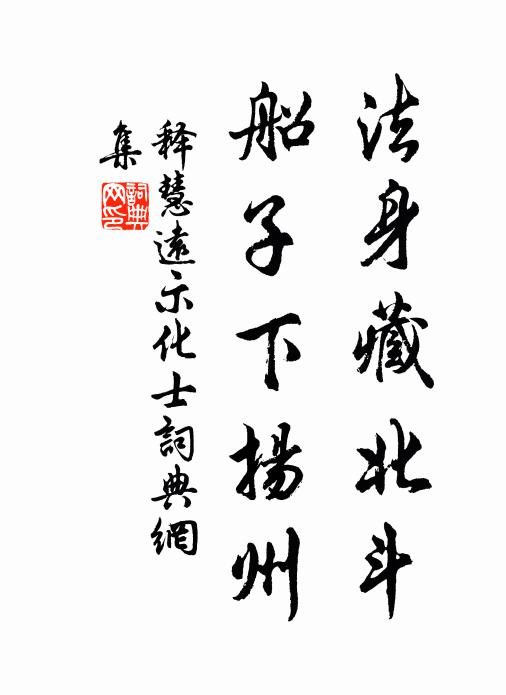 法身藏北斗
船子下揚州
释慧遠示化士詞典網
集
詞典网印